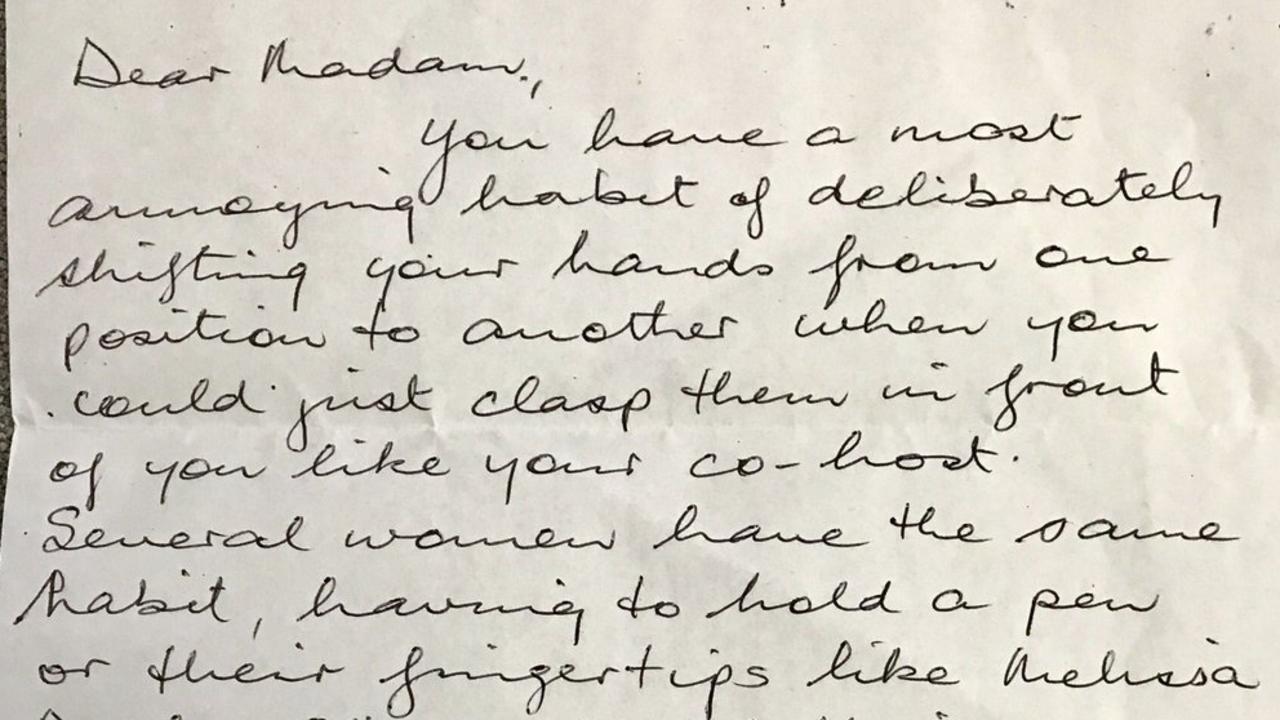 Dear Madam.,
You have a most
annoying habit of deliberately
shifting your hands from one
position to another when you
could just clasp them in front
of you like your co-host.
Several women have the same
habit, having to hold a pen
or their fingertips like Melissa